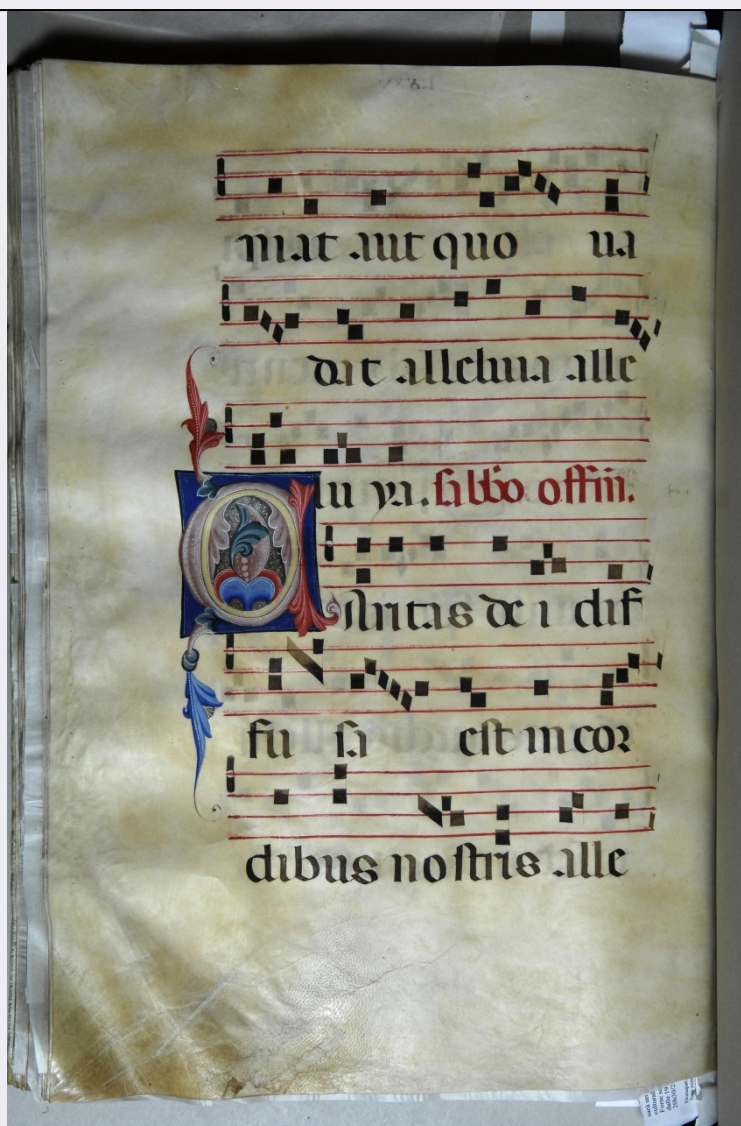 mat aut quo ua
dat alleluia alle
lu ya. sabbo offm.
aritas de i dif
fu sa est in cor
dibus nostris alle